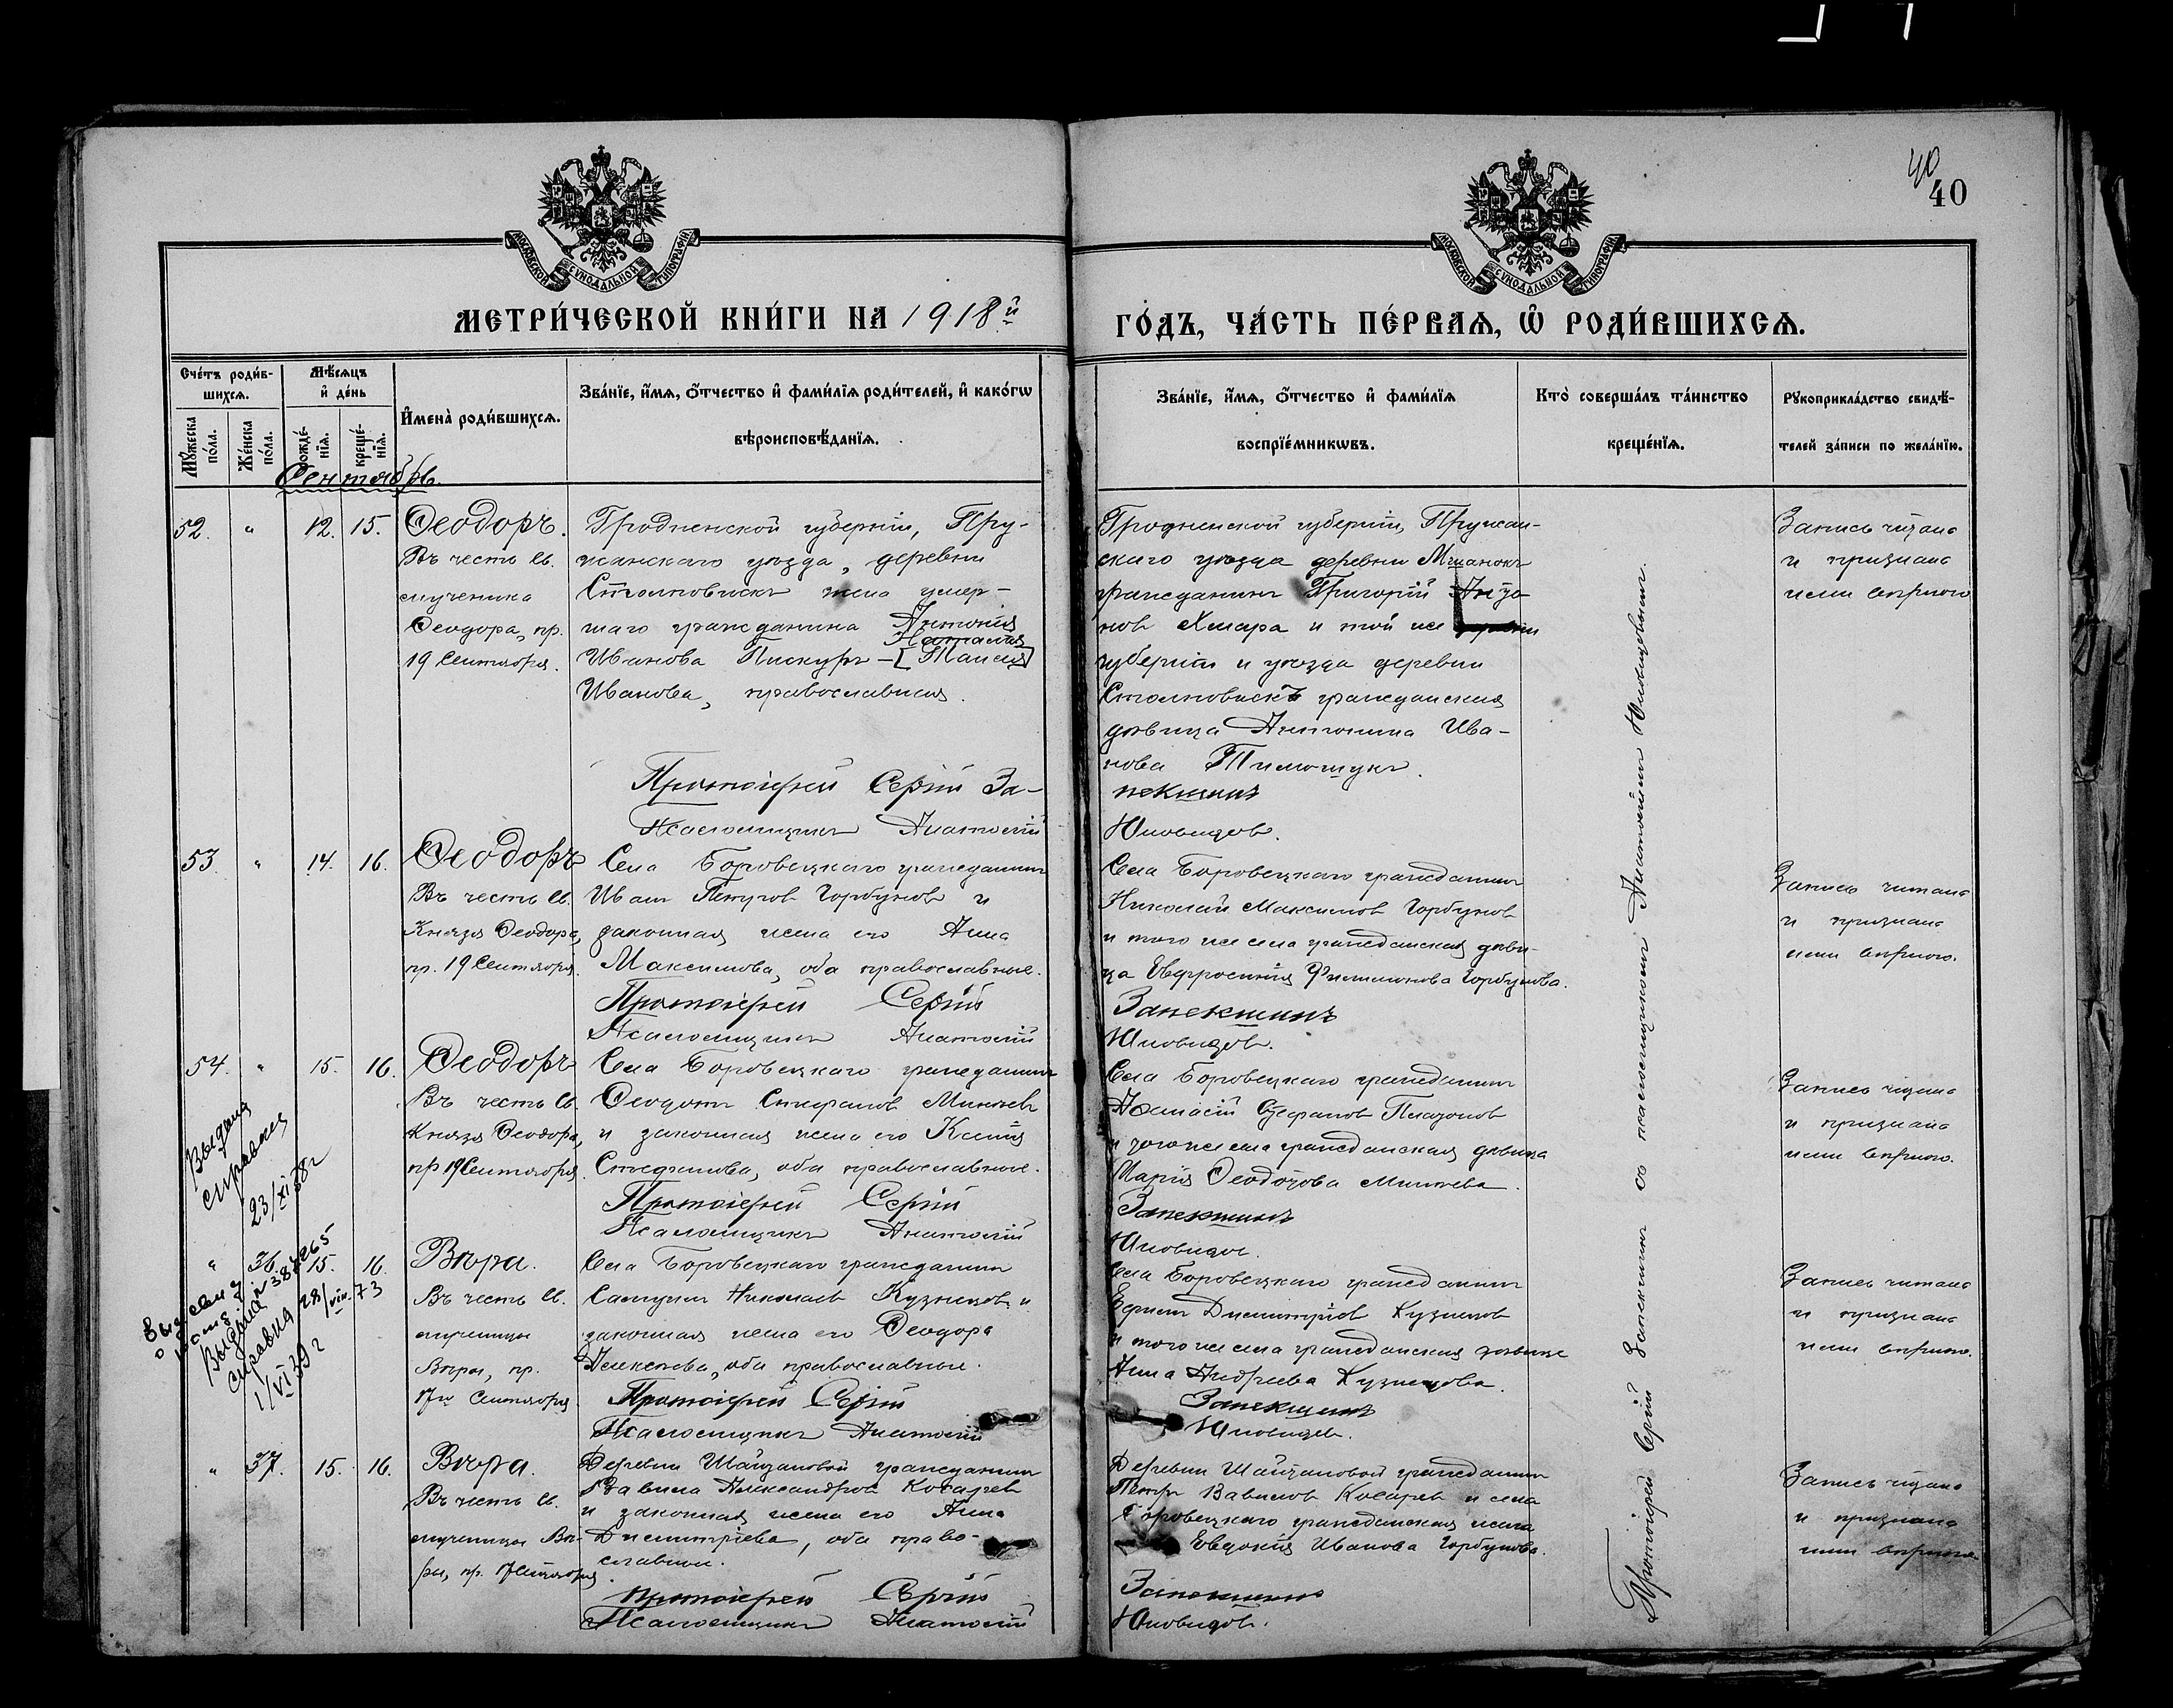 40
40
МОСКОВСКОЙ СѴНОДАЛЬНОЙ ТИПОГРАФІИ
МОСКОВСКОЙ СѴНОДАЛЬНОЙ ТИПОГРАФІИ
МЕТРИ́ЧЕСКОЙ КНИ́ГИ НА 1918й
ГО́ДЪ, ЧА́СТЬ ПЕ́РВАѦ, Ѡ҆ РОДИ́ВШИХСѦ.
Сче́тъ роди́в-
шихсѧ.
Мѣ́сѧцъ
и҆ де́нь
Мꙋ́жеска
по́ла.
Же́нска
по́ла.
рожде́-
нїѧ.
креще́-
нїѧ.
И҆мена̀ роди́вшихсѧ.
Зва́нїе, и҆́мѧ, ѻ҆́тчество и҆ фами́лїѧ роди́телей, и҆ како́гѡ
вѣроисповѣ́данїѧ.
Зва́нїе, и҆́мѧ, ѻ҆́тчество и҆ фами́лїѧ
воспрїе́мникѡвъ.
Кто̀ соверша́лъ та́инство
креще́нїѧ.
Рꙋкоприкла́дство свидѣ́-
телей за́писи по жела́нїю.
Сентябрь.
52. " 12. 15. Ѳеодоръ.
Въ честь св.
мученика
Ѳеодора, пр.
19 Сентября.
Гродненской губерніи, Пру-
жанскаго уѣзда, деревни
жена умер-
шаго гражданина Антонія
Наталія
Иванова Пискуръ - [Таисія]
Иванова, православная.
Протоіерей Сергій За-
Псаломщикъ Анатолій
Гродненской губерніи, Пружан-
скаго уѣзда деревни
гражданинъ Григорій
нов Хмара и той же
губерніи и уѣзда деревни
гражданская
дѣвица Антонина Ива-
нова Тимощукъ.
пекшинъ
Юновидов.
Запись читана
и признана
нами вѣрною
53. " 14. 16. Ѳеодоръ
Въ честь св.
Князя Ѳеодора,
пр. 19 Сентября.
Села Боровецкаго гражданинъ
Иван Петров Горбунов и
законная жена его Анна
Максимова, оба православные.
Протоіерей Сергій
Псаломщикъ Анатолій
Села Боровецкаго гражданинъ
Николай Максимов Горбунов
и того же села гражданская дѣви-
ца Евфросинія Филимонова Горбунова.
Запекшинъ
Юновидов.
Запись читана
и признана
нами вѣрною.
54. " 15. 16. Ѳеодоръ
Въ честь св.
Князя Ѳеодора,
пр 19 Сентября.
Села Боровецкаго гражданинъ
Ѳеодотъ Стефанов Минѣев
и законная жена его Ксенія
Стефанова, оба православные.
Протоіерей Сергій
Псаломщикъ Анатолій
Села Боровецкаго гражданинъ
Стефанов Платонов
и того же села гражданская дѣвица
Марія Ѳеодотова Минѣева.
Запекшинъ
Юновидов.
Запись читана
и признана
нами вѣрною.
Выдана
справка
23/XI 38 г
" 36. 15. 16. Вѣра.
Въ честь св.
мученицы
Вѣры, пр.
17го Сентября
Села Боровецкаго гражданинъ
Николаев Кузнецовъ и
законная жена его Ѳеодора
Алексѣева, оба православные.
Протоіерей Сергій
Псаломщикъ Анатолій
Села Боровецкаго гражданинъ
Ефрем Димитріов Кузнецов
и того же села гражданская дѣвица
Анна Андреева Кузнецова.
Запекшинъ
Юновидов.
Запись читана
и признана
нами вѣрною.
Выдана
справка
1/VI 39 г
" 37. 15. 16. Вѣра.
Въ честь св.
мученицы Вѣ-
ры, пр. 17 Сентября
Деревни Шайтановой гражданинъ
Вавила Александров Косарев
и законная жена его Анна
Димитріева, оба право-
славные.
Протоіерей Сергій
Псаломщикъ Анатолій
Деревни Шайтановой гражданинъ
Петръ Вавилов Косарев и села
Боровецкаго гражданская жена
Евдокія Иванова Горбунова.
Запекшинъ
Юновидов.
Запись читана
и признана
нами вѣрною
Протоіерей Сергій Запекшинъ съ псаломщикомъ Анатоліемъ Юновидовымъ.